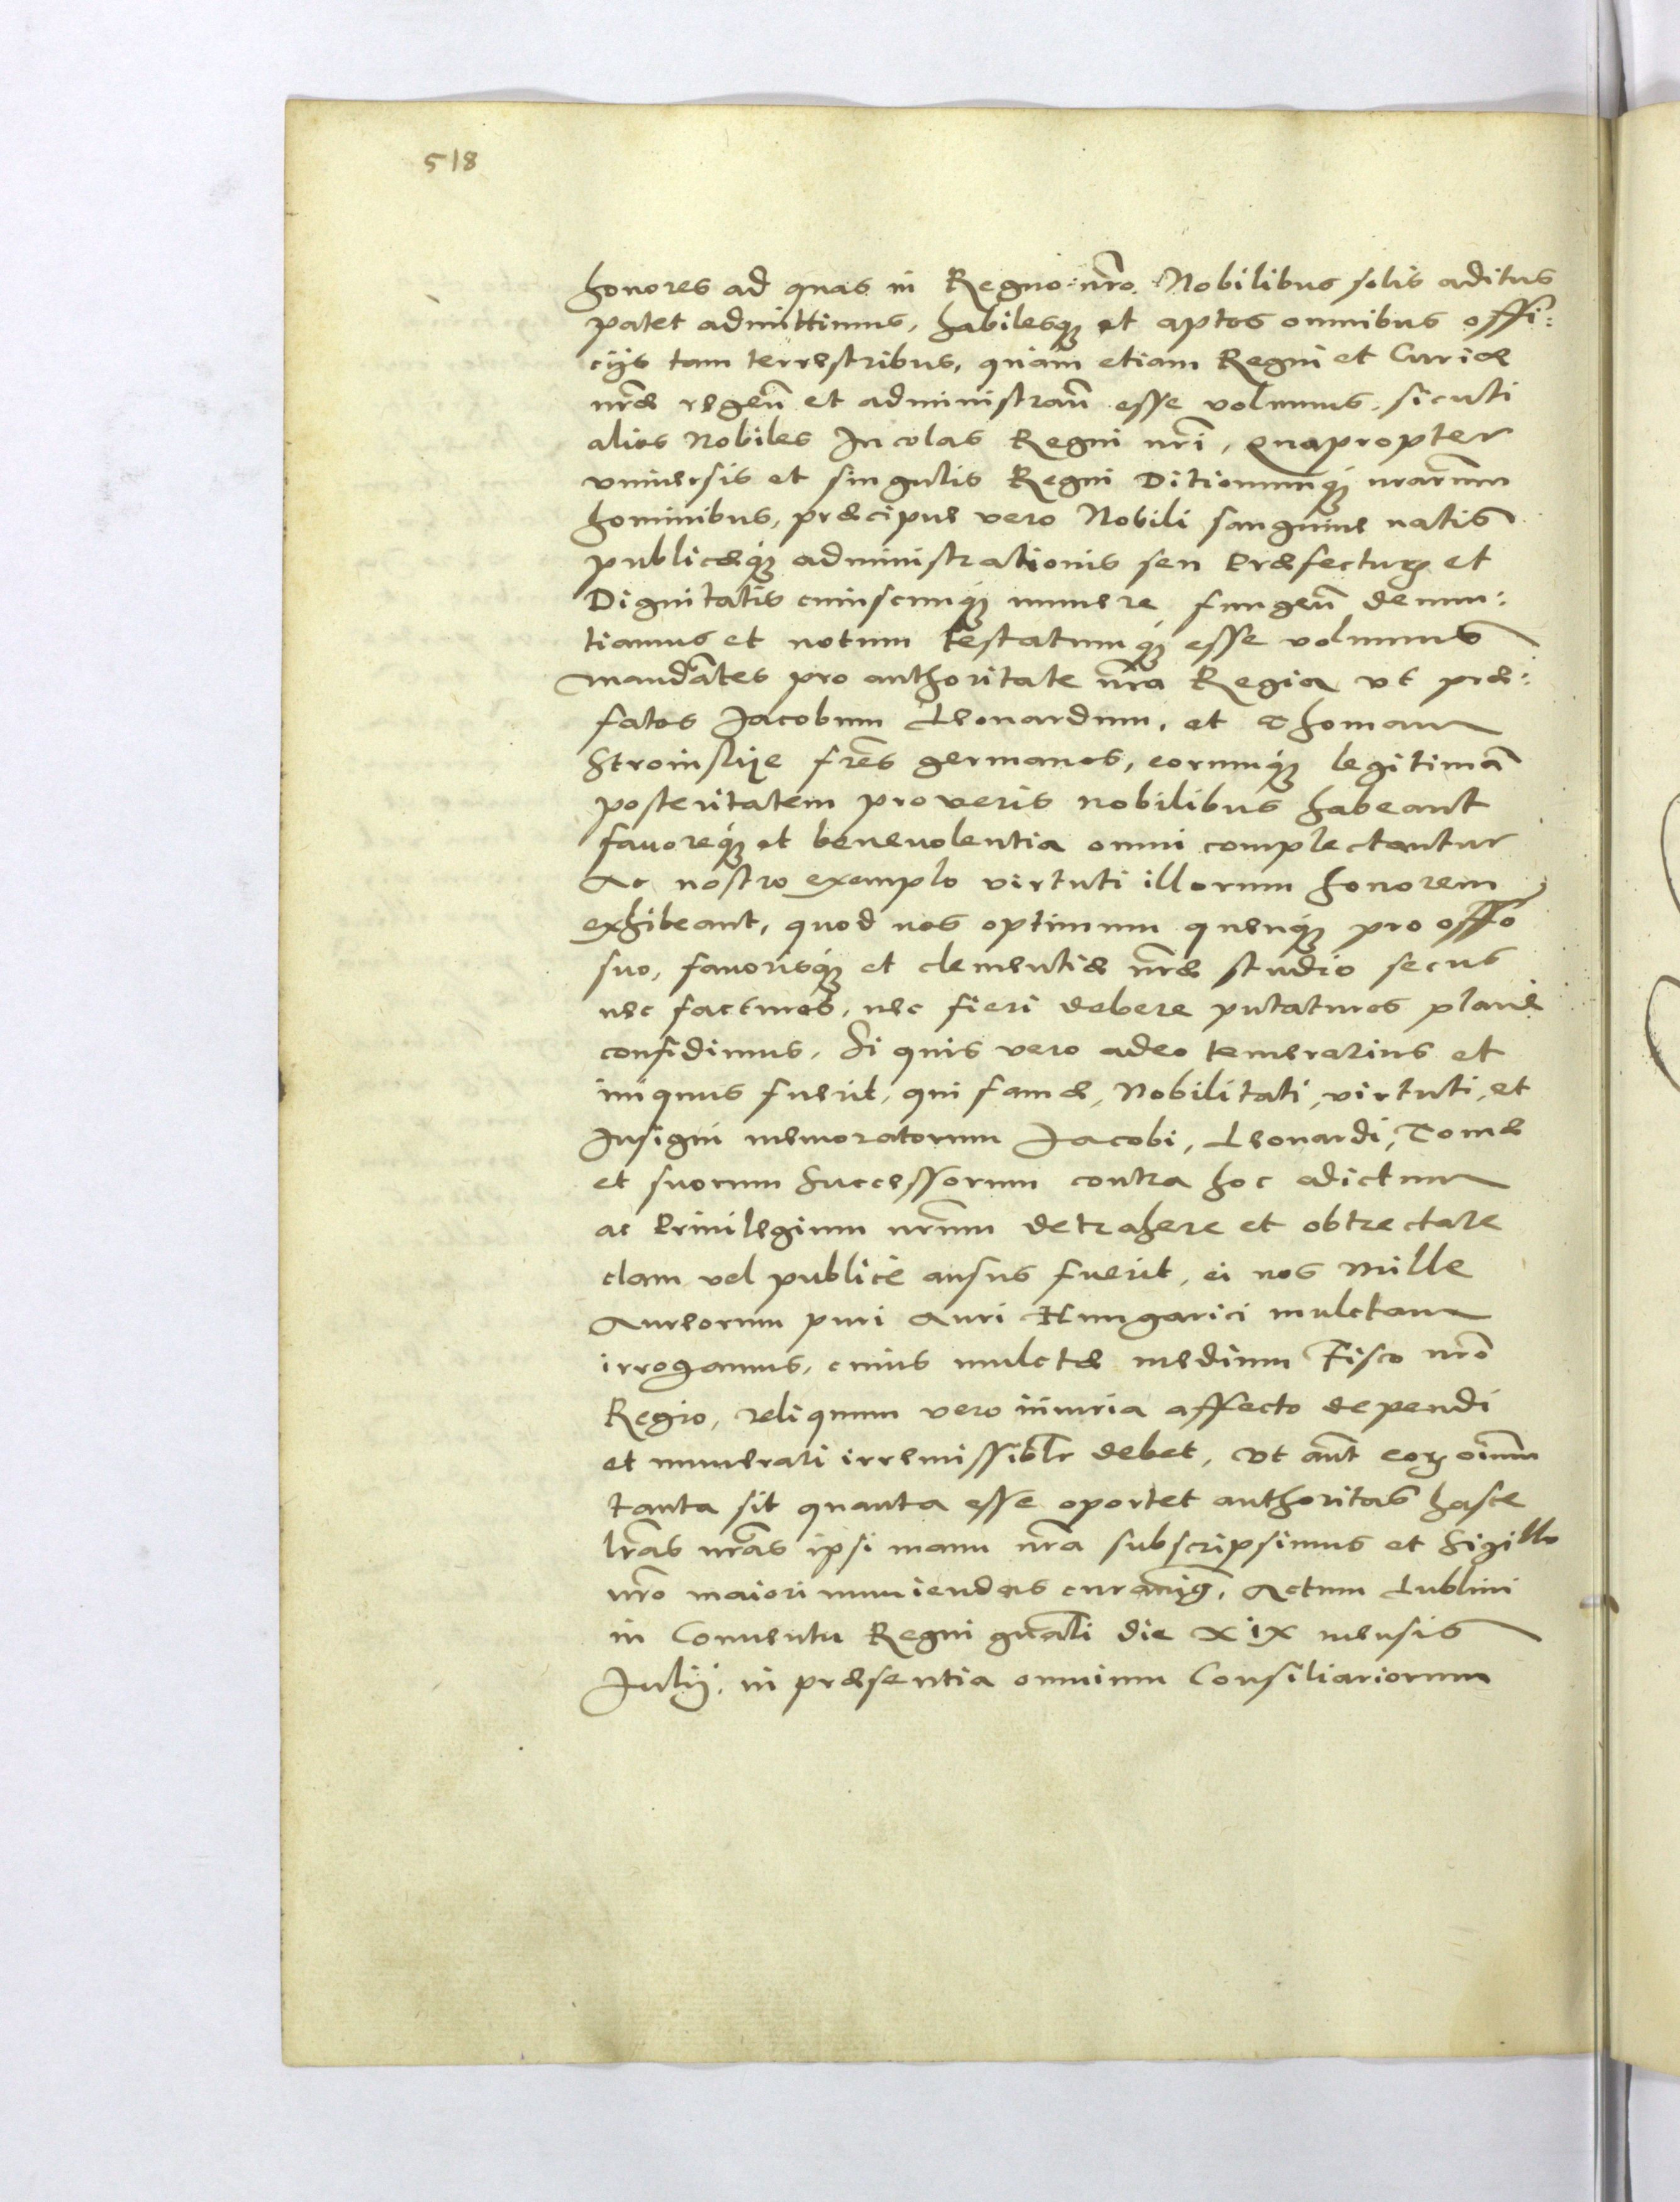 518
honores ad quas in Regno nr̃o Nobilibus solis aditus
patet admittimus, habilesq; et aptos omnibus offi:
cijs tam terrestribus, quam etiam Regni et Curiæ
nr̃æ regeñ et administrañ esse volumus, sicuti
alios Nobiles Incolas Regni nr̃i, Quapropter
vniuersis et singulis Regni Ditionumq; nr̃arum
hominibus, præcipue vero Nobili sanguine natis
publicæq; administrationis seu Præfecturꝝ et
Dignitatis cuiuscunq; munere fungeñ denun:
tiamus et notum testatumq; esse volumus
mandãtes pro authoritate nr̃a Regia vt præ:
fatos Jacobum Leonardum, et Thomam
Stroinskije fr̃es germanos, eorumq; legitimã
posteritatem pro veris nobilibus habeant
fauoreq; et beneuolentia omni complectantur
Ac nostro exemplo virtuti illorum honorem
exhibeant, quod nos optimum quenq; pro offo
suo, fauorisq; et clementiæ nr̃æ studio secus
nec facturos, nec fieri debere putaturos plane
confidimus, Si quis vero adeo temerarius et
iniquus fuerit, qui famæ, Nobilitati, virtuti, et
Insigni memoratorum Jacobi, Leonardi, Tomæ
et suorum Successorum contra hoc ædictum
ac Priuilegium nr̃um detrahere et obtrectare
clam vel publice ausus fuerit, ei nos Mille
Aureorum puri Auri Hungarici mulctam
irrogamus, cuius mulctæ medium Fisco nr̃o
Regio, reliquum vero iniuria affecto dependi
et numerari irremissiblr debet, Vt aũt eoꝝ oĩum
tanta sit quanta esse oportet authoritas hasce
lr̃as nr̃as ipsi manu nr̃a subscripsimus et Sigillo
nr̃o maiori muniendas curauimꝰ, Actum Lublini
in Conuentu Regni gnãli die XIX mensis
Julij, in præsentia omnium Consiliariorum